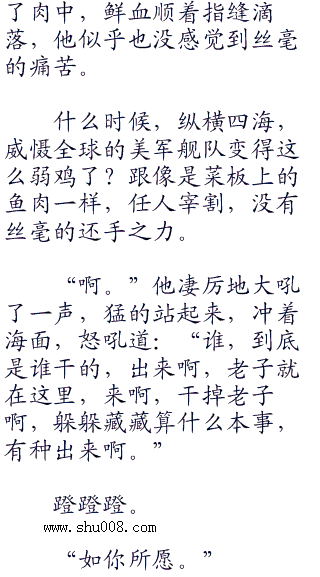 了肉中，鲜血顺着指缝滴
落，他似乎也没感觉到丝毫
的痛苦。
什么时候，纵横四海，
威慑全球的美军舰队变得这
么弱鸡了？跟像是菜板上的
鱼肉一样，任人宰割，没有
丝毫的还手之力。
“啊。”他凄厉地大吼
了一声，猛的站起来，冲着
海面，怒吼道：“谁，到底
是谁干的，出来啊，老子就
在这里，来啊，干掉老子
啊，躲躲藏藏算什么本事，
有种出来啊。”
蹬蹬蹬。
www.shu008.com
“如你所愿。”